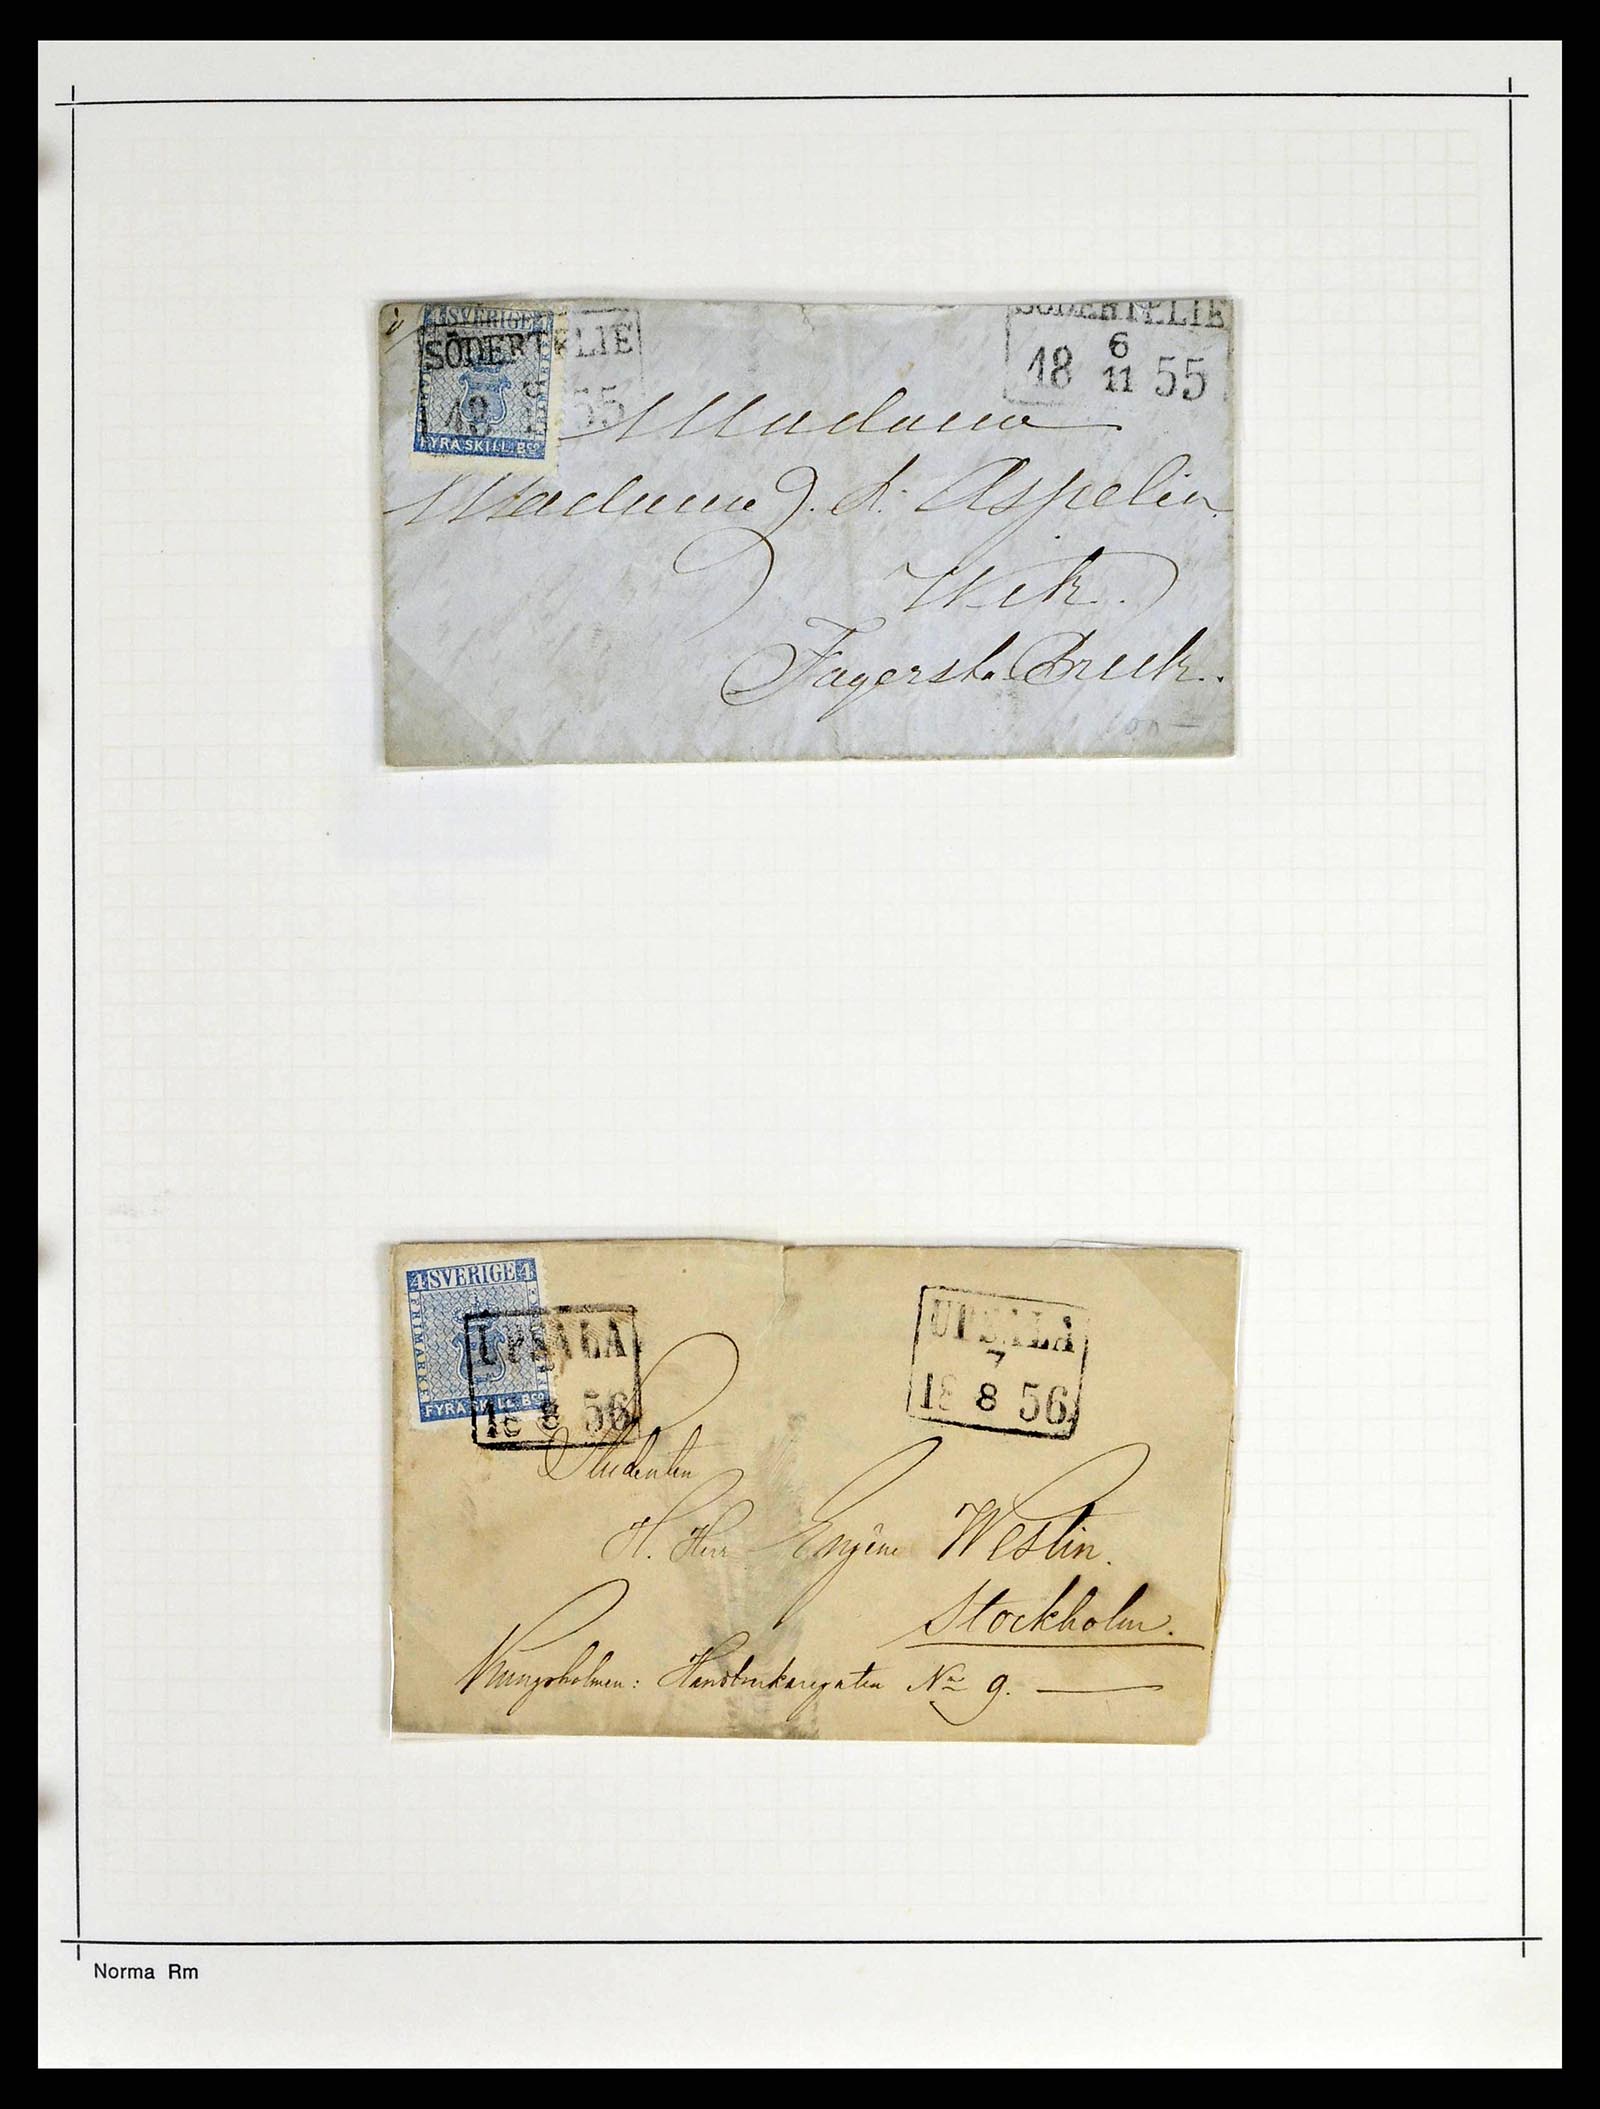 4 SVERIGE 4
SÖDERTELIE
55
FYRA SKILL. Bco
SÖDERTELIE
6
18 11 55
Madame
Madame J. L. Aspelin.
Wik.
Fagersta Bruk.
4 SVERIGE 4
FRIMÄRKE
FYRA SKILL. Bco
UPSALA
18 8 56
UPSALA
7
18 8 56
Studenten
H. Herr Eugène Westin.
Stockholm.
Kungsholmen: Handtverkaregatan No 9.
Norma Rm